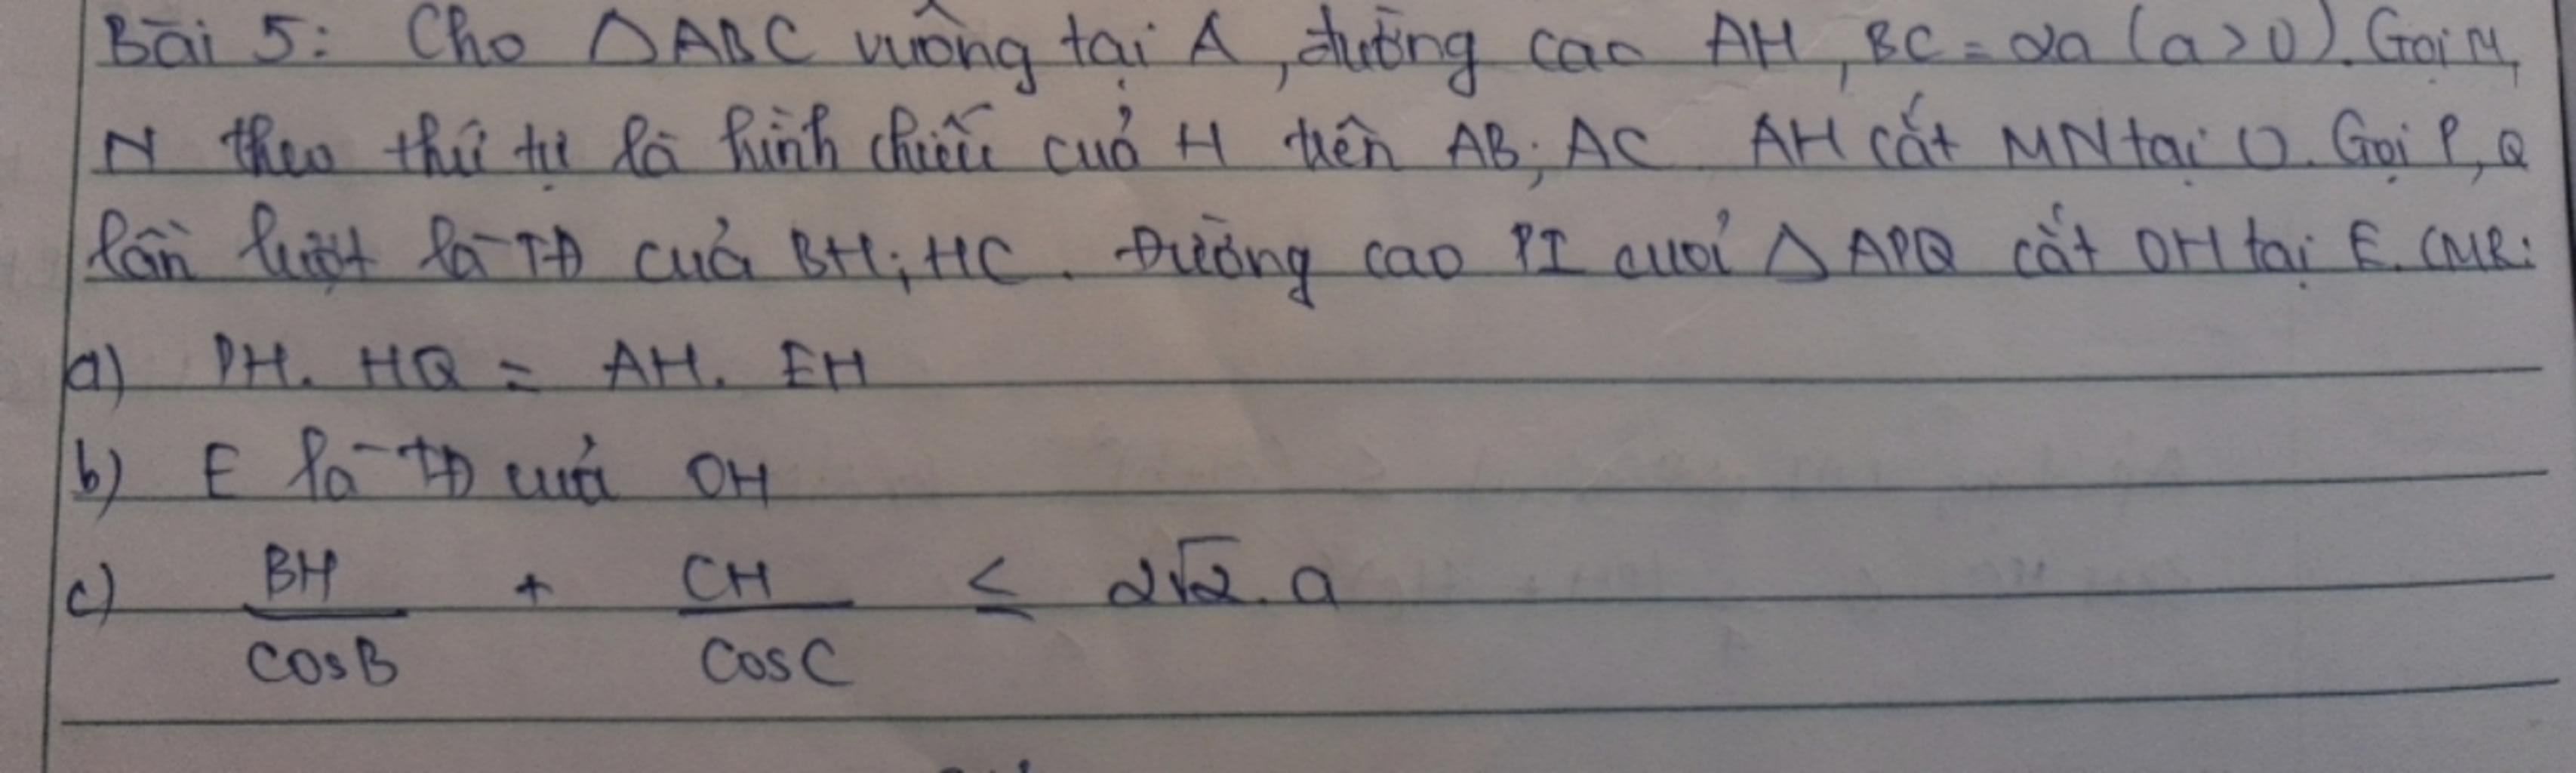 Bài 5: Cho △ABC vuông tại A, đường cao AH, BC = 2a (a>0). Gọi M,
N theo thứ tự là hình chiếu của H trên AB; AC. AH cắt MN tại O. Gọi P, Q
lần lượt là TĐ của BH; HC. Đường cao PI của △APQ cắt OH tại E. CMR:
a) PH. HQ = AH. EH
b) E là TĐ của OH
c) BH/cosB + CH/cosC ≤ 2√2. a